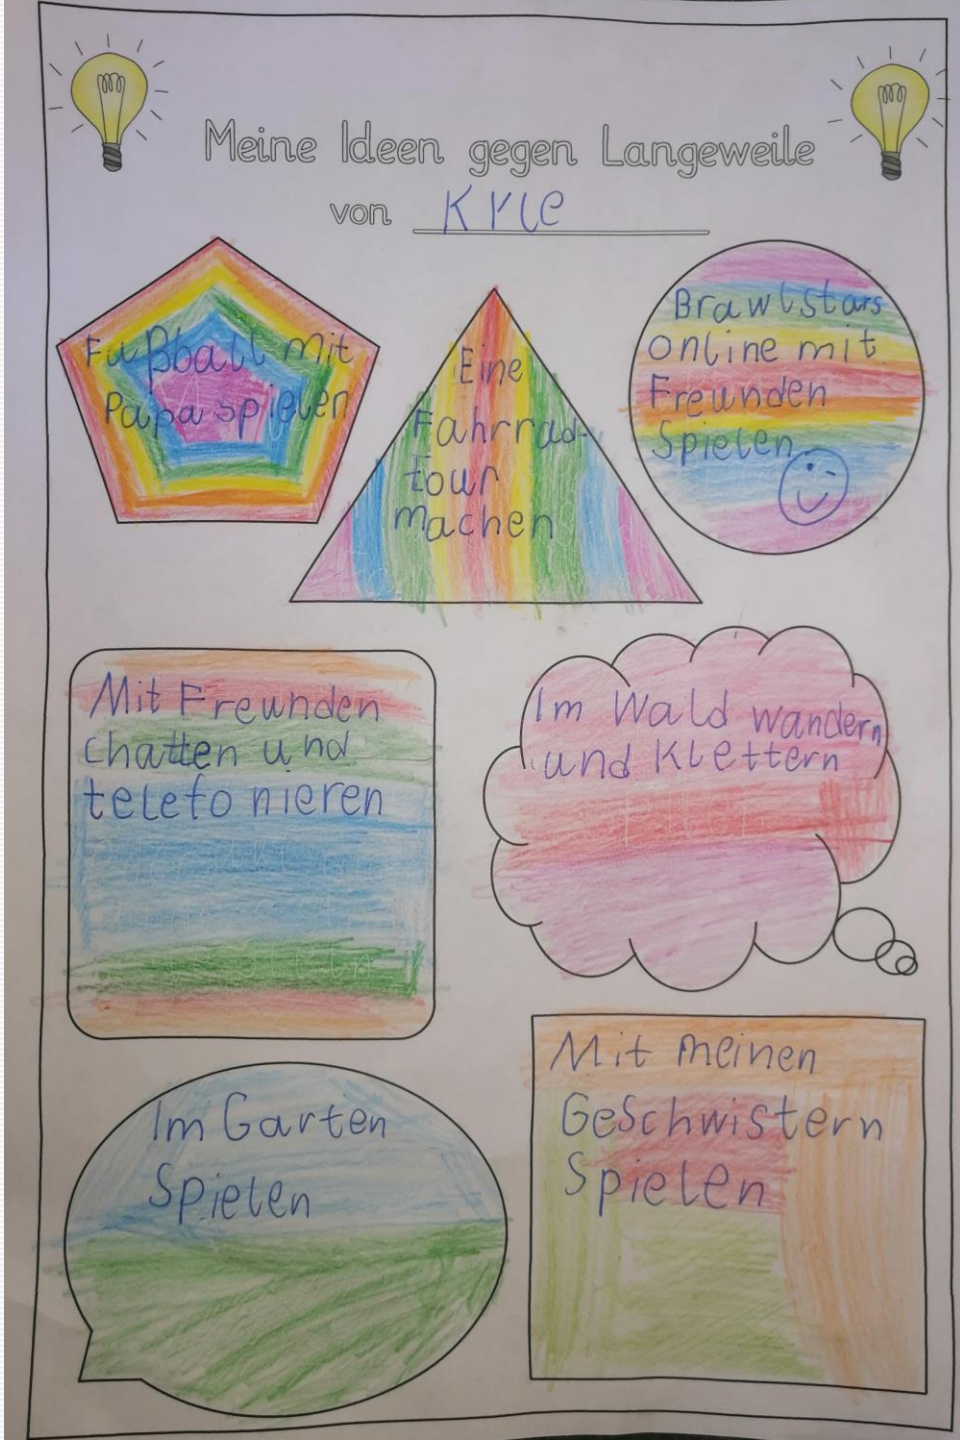 Meine Ideen gegen Langeweile
von Kyle
Fußball mit
Papa spielen
Eine
Fahrrad-
tour
machen
Brawlstars
online mit
Freunden
Spielen
Mit Freunden
chatten und
telefonieren
Im Wald wandern
und Klettern
Im Garten
Spielen
Mit meinen
Geschwistern
Spielen